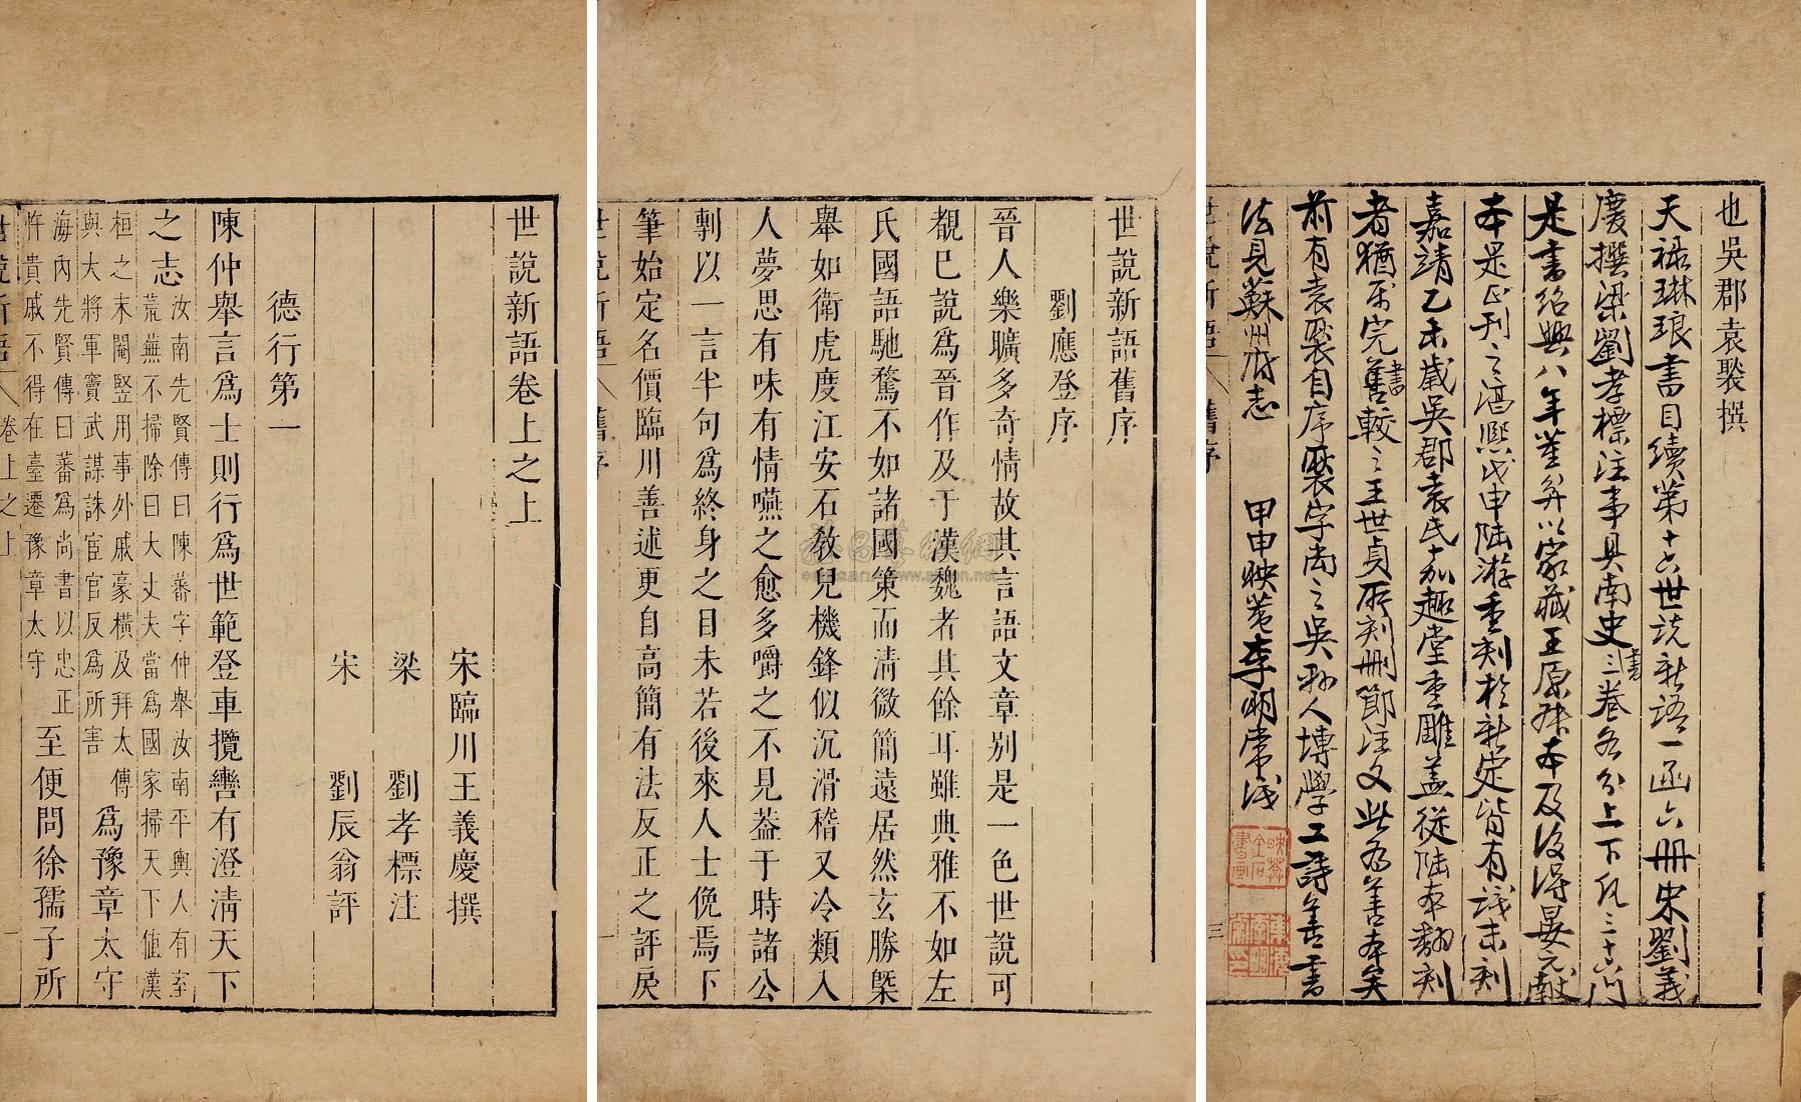 也吳郡袁褧撰
天祿琳琅書目續第十六世說新語一函六冊宋劉義
慶撰梁劉孝標注事具南史書三卷各分上下凡三十六門
是書紹興八年董弅以家藏王原叔本及後得晏元獻
本是正刊之淳熙戊申陸游重刻於新定皆有識末刻
嘉靖乙未歲吳郡袁氏嘉趣堂重雕蓋從陸本翻刻
者猶屬完善書較之王世貞所刻刪節注文此為善本矣
前有袁褧自序褧字尚之吳縣人博學工詩善書
法見蘇州府志 甲申映菴李明常識
三
世說新語舊序
劉應登序
晉人樂曠多奇情故其言語文章别是一色世說可
覩巳說爲晉作及于漢魏者其餘耳雖典雅不如左
氏國語馳騖不如諸國策而淸微簡遠居然玄勝槩
舉如衛虎度江安石敎兒機鋒似沉滑稽又冷類入
人夢思有味有情嚥之愈多嚼之不見葢于時諸公
剸以一言半句爲終身之目未若後來人士俛焉下
筆始定名價臨川善述更自高簡有法反正之評戾
世說新語 舊序 一
世說新語卷上之上
宋臨川王義慶撰
梁 劉孝標注
宋 劉辰翁評
德行第一
陳仲舉言爲士則行爲世範登車攬轡有澄淸天下
之志汝南先賢傳曰陳蕃字仲舉汝南平輿人有室荒蕪不掃除曰大丈夫當爲國家掃天下值漢
桓之末閹豎用事外戚豪橫及拜太傅與大將軍竇武謀誅宦官反爲所害爲豫章太守
海內先賢傳曰蕃爲尚書以忠正忤貴戚不得在臺遷豫章太守至便問徐孺子所
世說新語 卷上之上 一